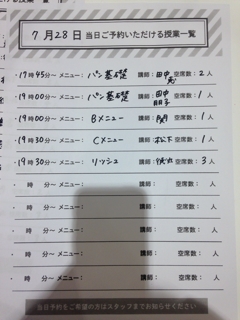 7月28日 当日ご予約いただける授業一覧
・17時45分～ メニュー： パン基礎 講師：田中 空席数：2人
・19時00分～ メニュー： パン基礎 講師：田中朋子 空席数：1人
・19時00分～ メニュー： Bメニュー 講師：関 空席数：1人
・19時30分～ メニュー： Cメニュー 講師：松下 空席数：1人
・19時30分～ メニュー： リッシュ 講師： 空席数：3人
・ 時 分～ メニュー： 講師： 空席数： 人
・ 時 分～ メニュー： 講師： 空席数： 人
・ 時 分～ メニュー： 講師： 空席数： 人
・ 時 分～ メニュー： 講師： 空席数： 人
・ 時 分～ メニュー： 講師： 空席数： 人
当日予約をご希望の方はスタッフまでお知らせください